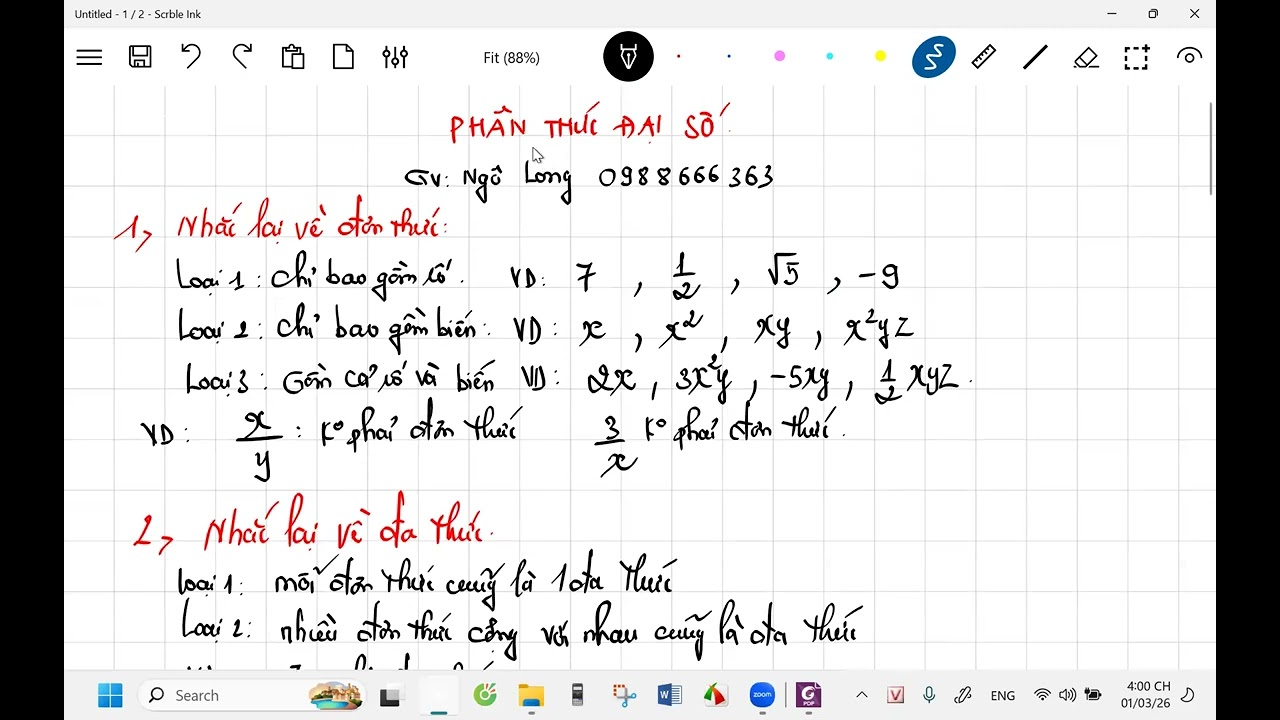 Untitled - 1 / 2 - Scrble Ink
Fit (88%)
PHÂN THỨC ĐẠI SỐ
GV: Ngô Long 0988666363
1, Nhắc lại về đơn thức:
Loại 1: chỉ bao gồm số. VD: 7 , 1/2 , √5 , -9
Loại 2: chỉ bao gồm biến: VD: x , x² , xy , x²yz
Loại 3: Gồm cả số và biến VD: 2x , 3x²y , -5xy , 1/2 xyz.
VD: x/y : K° phải đơn thức 3/x K° phải đơn thức.
2, Nhắc lại về đa thức.
Loại 1: mỗi đơn thức cũng là 1 đa thức
Loại 2: nhiều đơn thức cộng với nhau cũng là đa thức
Search
W
zoom
PDF
V
ENG
4:00 CH
01/03/26